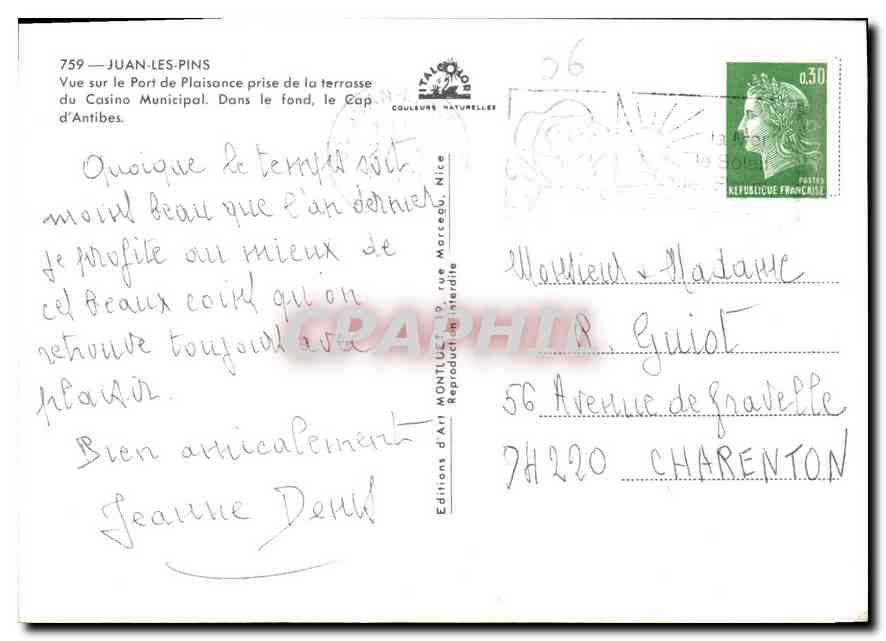 759 — JUAN-LES-PINS
Vue sur le Port de Plaisance prise de la terrasse
du Casino Municipal. Dans le fond, le Cap
d'Antibes.
ITALCOLOR
COULEURS NATURELLES
06
0,30
POSTES
REPUBLIQUE FRANÇAISE
la Mer
le Soleil
Quoique le temps soit
moins beau que l'an dernier
je profite au mieux de
ces beaux coins qu'on
retrouve toujours avec
plaisir.
Bien amicalement
Jeanne Denis
Editions d'Art MONTLUET 19, rue Marceau, Nice
Reproduction interdite
Monsieur & Madame
R. Guiot
56 Avenue de Gravelle
94220 CHARENTON
CPAPHIL